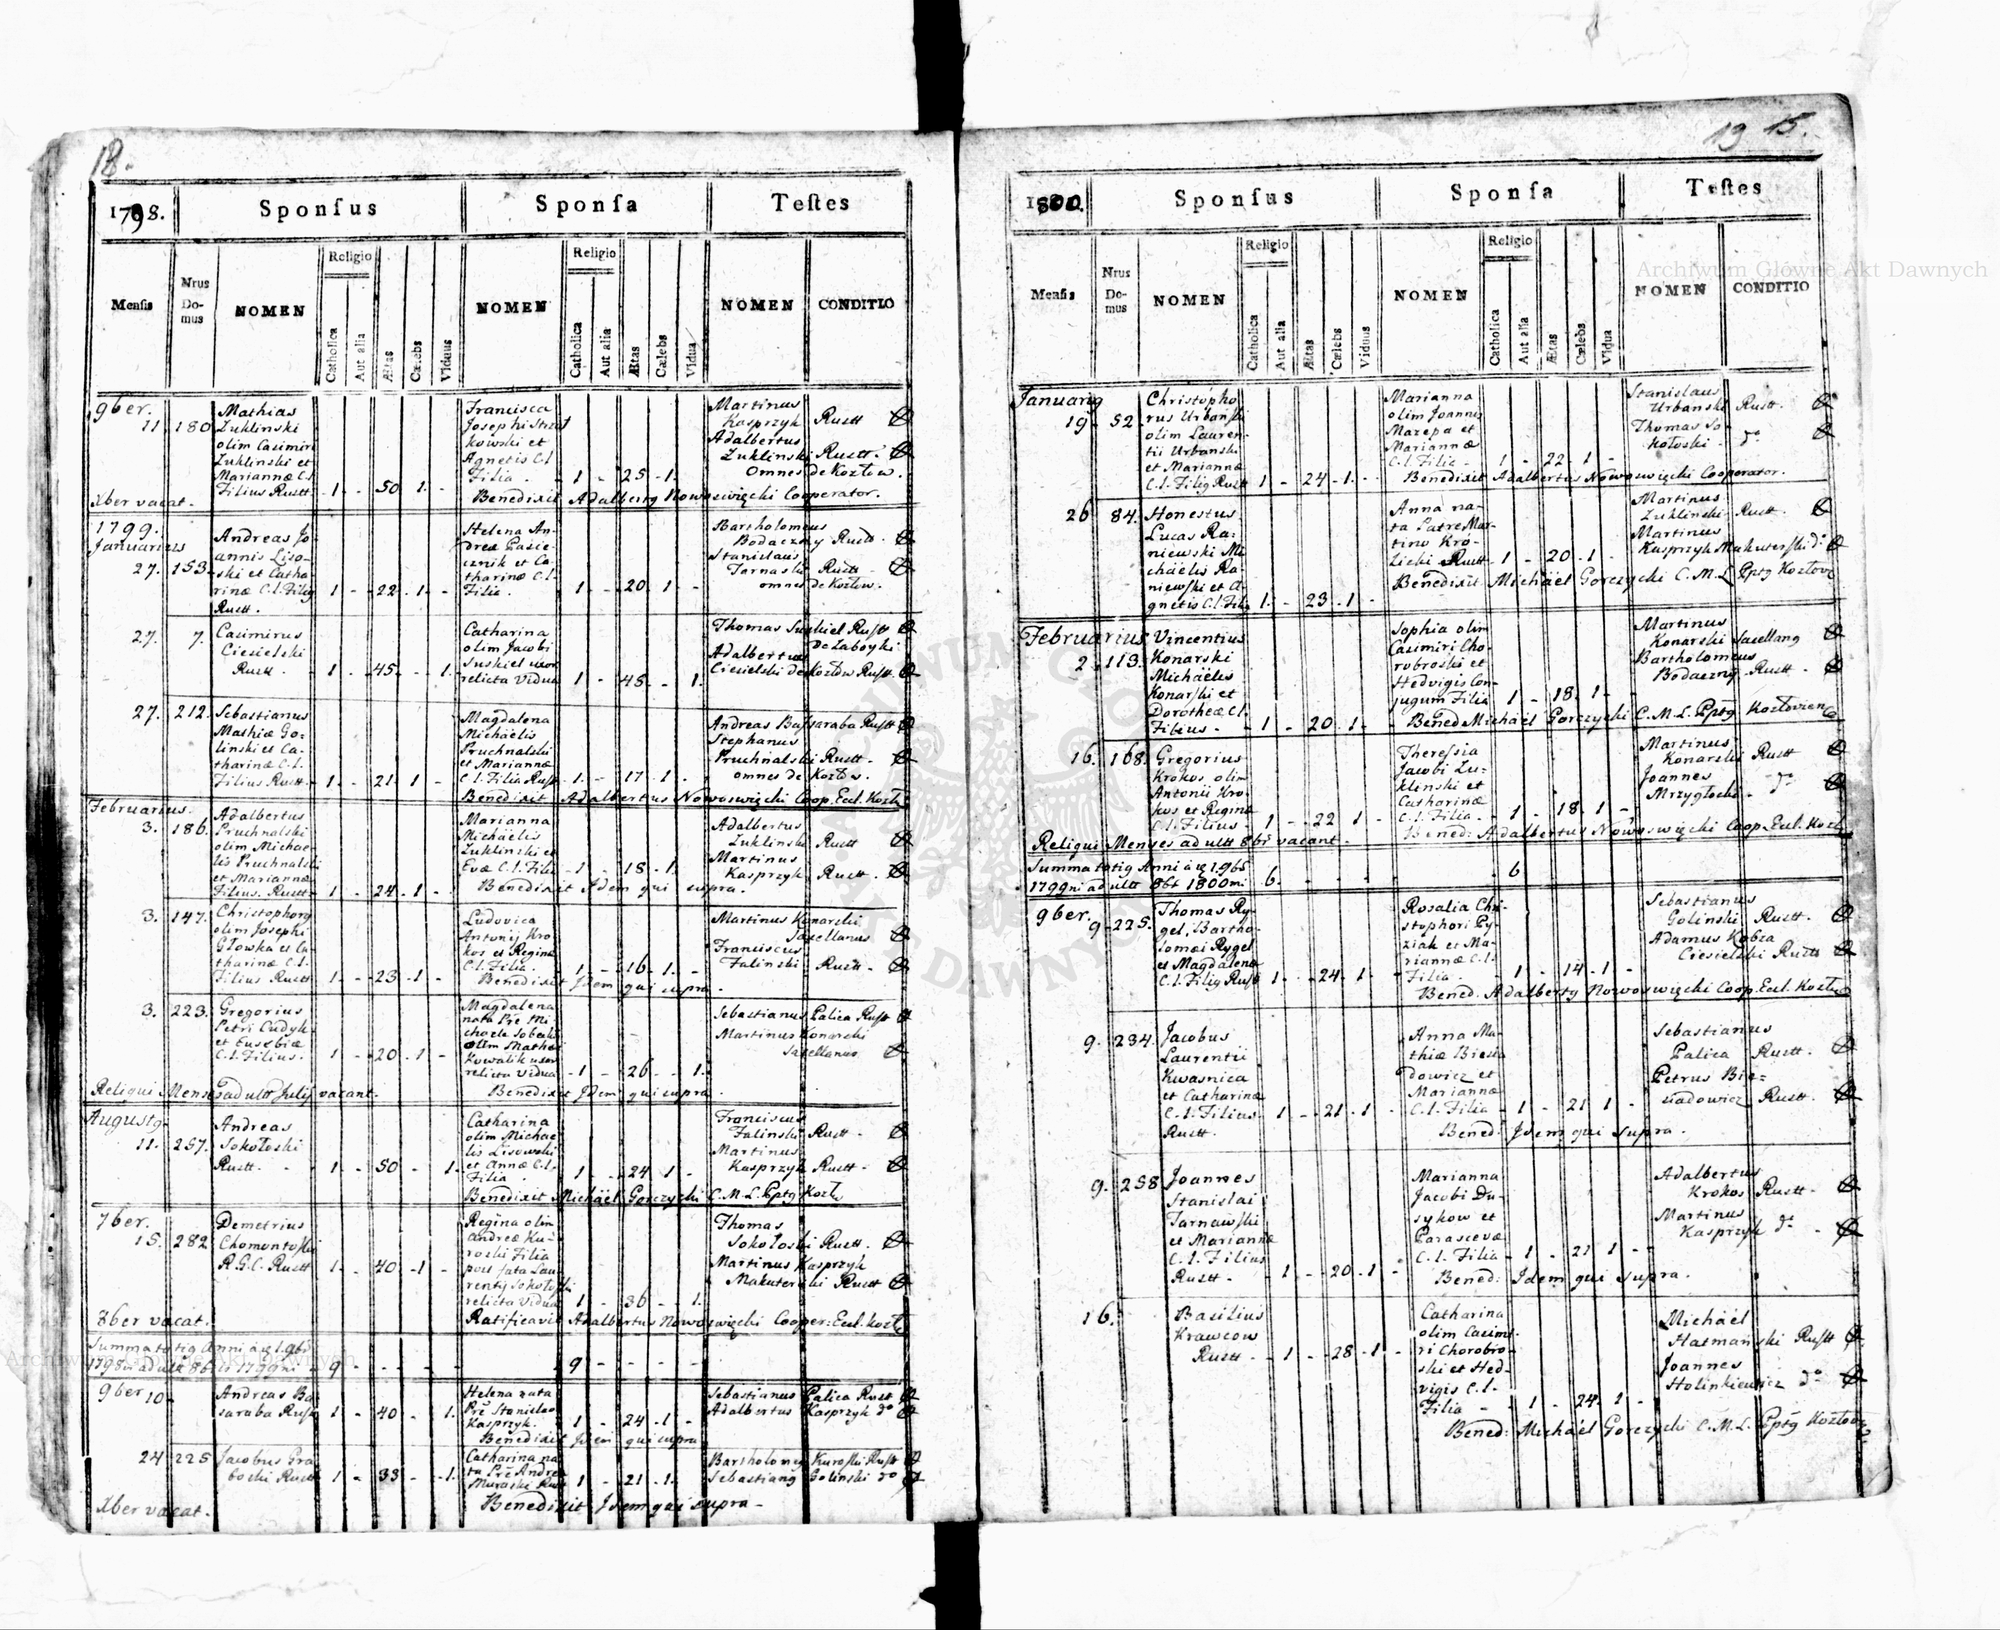 18.
1798.
Sponſus
Sponſa
Teſtes
Menſis
Nrus
Do-
mus
NOMEN
Religio
Catholica
Aut alia
Ætas
Cælebs
Viduus
NOMEN
Religio
Catholica
Aut alia
Ætas
Cælebs
Vidua
NOMEN
CONDITIO
9ber.
11. 180
Mathias
Zuklinski
olim Casimiri
Zuklinski et
Mariannæ C.l.
Filius Rustt. 1 - 50 1.
Francisca
Josephi
kowski et
Agnetis C.l.
Filia 1 - 25 - 1.
Martinus
Kasprzyk Rustt
Adalbertus
Zuklinski Rustt.
Omnes de Kozłow.
Benedixit Adalbertg Nowoswięcki Cooperator.
Xber vacat.
1799.
Januarius
27. 153.
Andreas Jo
annis Liso-
ski et Catha
rinæ C.l. Filig
Rustt. 1 - 22 1 -
Helena An-
dreæ Pasie-
cznik et Ca-
tharinæ C.l.
Filia. 1 - 20 1 -
Bartholomeus
Bodaczny Rustt.
Stanislaus
Tarnaski Rustt
omnes de Kozłow.
27. 7.
Casimirus
Ciesielski
Rustt. 1 - 45 - 1.
Catharina
olim Jacobi
Suskiel uxor
relicta Vidua 1 - 48 - 1.
Thomas Suskiel Rustt
de Łaboyki
Adalbertus
Ciesielski de Kozłow Rustt.
27. 212.
Sebastianus
Mathiæ Go-
linski et Ca-
tharinæ C.l.
Filius Rustt. 1 - 21 1 -
Magdalena
Michaelis
Pruchnalski
et Mariannæ
C.l. Filia Rustt 1 - 17 1 -
Andreas Bassaraba Rustt
Stephanus
Pruchnalski Rustt.
omnes de Kozłow.
Benedixit Adalbertus Nowoswięcki Coop. Eccl. Kozł.
Februarius.
3. 186.
Adalbertus
Pruchnalski
olim Michae-
lis Pruchnalski
et Mariannæ
Filius. Rustt. 1 - 24 1 -
Marianna
Michaelis
Zuklinski et
Evæ C.l. Filia 1 - 18 - 1.
Adalbertus
Zuklinski Rustt
Martinus
Kasprzyk Rustt.
Benedixit Idem qui supra.
3. 147.
Christophorg
olim Josephi
Głowka et Ca-
tharinæ C.l.
Filius Rustt 1 - 23 1 -
Ludovica
Antonij Kro
kos et Reginæ
C.l. Filia. 1 - 16 1 -
Martinus Konarski
Sacellanus
Franciscus
Falinski Rustt.
Benedixit Idem qui supra.
3. 223.
Gregorius
Petri Cudyk
et Eusebiæ
C.l. Filius. 1 - 20 1 -
Magdalena
nata Pře Mi
chaele
olim Mathei
Kowalik uxor
relicta Vidua 1 - 26 - 1.
Sebastianus Palica Rustt
Martinus Konarski
Sacellanus
Benedixit Idem qui supra.
Reliqui Menses ad ultt Julij vacant.
Augustg
11. 257.
Andreas
Sokołoski
Rustt. 1 - 50 - 1.
Catharina
olim Michae
lis Lisowski
et Annæ C.l.
Filia 1 - 24 1 -
Franciscus
Falinski Rustt.
Martinus
Kasprzyk Rustt.
Benedixit Michäel Gorczycki C.M.L. Pptg Kozłw
7ber.
15. 282
Demetrius
Chomontoski
R.G.C. Rustt 1 - 40 1 -
Regina olim
Andreæ Ku-
roski Filia
post fata Lau
rentij
relicta Vidua 1 - 36 - 1.
Thomas
Sokołoski Rustt.
Martinus Kasprzyk
Makuterski Rustt
Ratificavit Adalbertus Nowoswięcki Cooper: Eccl. Kozł
8ber vacat.
Summa totig Anni à 1. 9bř
1798vi ad ultt 8bris 1799ni - 9 - - - - 9 - - -
9ber 10
Andreas Ba
saraba Rustt 1 - 40 - 1.
Helena nata
Pře Stanislao
Kasprzyk. 1 - 24 1 -
Sebastianus Palica Rustt
Adalbertus Kasprzyk do
Benedixit Idem qui supra
24 225
Jacobus Gra
boski Rustt 1 - 33 - 1.
Catharina na
ta Pře Andrea
Muraski Rustt 1 - 21 1
Bartholomeg Kuroski Rustt
Sebastiang Golinski do
Benedixit Idem qui supra -
Xber vacat.
19 15.
1800.
Sponſus
Sponſa
Teſtes
Menſis
Nrus
Do-
mus
NOMEN
Religio
Catholica
Aut alia
Ætas
Cælebs
Viduus
NOMEN
Religio
Catholica
Aut alia
Ætas
Cælebs
Vidua
NOMEN
CONDITIO
Januarig
19. 52.
Christopho
rus Urbański
olim Lauren-
tii Urbanski
et Mariannæ
C.l. Filig Rustt 1 - 24 1 -
Marianna
olim Joannis
Mazepa et
Mariannæ
C.l. Filia - 1 - 22 1 -
Stanislaus
Urbanski Rustt.
Thomas So
kołoski. do
Benedixit Adalbertus Nowoswięcki Cooperator.
26. 84.
Honestus
Lucas Ra-
niewski Mi
chäelis Ra-
niewski et A-
gnetis C.l. Filig 1 - 23 1 -
Anna na-
ta Patre Mar-
tino Kro-
licki Rustt 1 - 20 1 -
Martinus
Zuklinski Rustt.
Martinus
Kasprzyk Makuterski do
Benedixit Michäel Gorczycki C.M.L. Pptg Kozłovi
Februarius
2. 113.
Vincentius
Konarski
Michäelis
Konarski et
Dorotheæ C.l.
Filius. - 1 - 20 1 -
Sophia olim
Casimiri Cho-
robroski et
Hedvigis Con-
jugum Filia 1 - 18 1 -
Martinus
Konarski Sacellang
Bartholomeus
Bodaczny Rustt.
Bened Michäel Gorczycki C.M.L. Pptg Kozłovien
16. 168.
Gregorius
Krokos olim
Antonii Kro-
kos et Reginæ
C.l. Filius. 1 - 22 1 -
Theressia
Jacobi Zu-
klinski et
Catharinæ
C.l. Filia. - 1 - 18 1 -
Martinus
Konarski Rustt
Joannes
Mrzygłocki - do
Bened: Adalbertus Nowoswięcki Coop. Eccl. Kozł
Reliqui Menses ad ultt 8bř vacant.
Summa totig Anni à 1. 9bř
1799ni ad ultt 8bř 1800mi 6. - - - - 6
9ber.
9. 225.
Thomas Ry-
gel, Bartho-
lomæi Rygel
et Magdalenæ
C.l. Filig Rustt 1 - 24 1 -
Rosalia Chri-
stophori Py-
ziak et Ma-
riannæ C.l.
Filia. - 1 - 14 1 -
Sebastianus
Golinski Rustt.
Adamus Kobza
Ciesielski Rustt
Bened. Adalbertg Nowoswięcki Coop. Eccl. Kozłw
9. 234.
Jacobus
Laurentii
Kwasnica
et Catharinæ
C.l. Filius. 1 - 21 1 -
Rustt.
Anna Ma-
thiæ Biesia
dowicz et
Mariannæ
C.l. Filia - 1 - 21 1 -
Sebastianus
Palica Rustt.
Petrus Bie-
siadowicz Rustt.
Bened: Idem qui supra.
9. 258
Joannes
Stanislai
Tarnawski
et Mariannæ
C.l. Filius
Rustt. - 1 - 20 1 -
Marianna
Jacobi Du-
sykow et
Parascevæ
C.l. Filia - 1 - 21 1 -
Adalbertus
Krokos Rustt.
Martinus
Kasprzyk do -
Bened: Idem qui supra.
16.
Basilius
Krawcow
Rustt. - 1 - 28 1 -
Catharina
olim Casimi-
ri Chorobro-
ski et Hed-
vigis C.l.
Filia - 1 - 24 1 -
Michäel
Hatmański Rustt
Joannes
Holinkiewicz do
Bened: Michäel Gorczycki C.M.L. Pptg Kozłov
Archiwum Główne Akt Dawnych
Archiwum Główne Akt Dawnych
ARCHIWUM GŁÓWNE AKT DAWNYCH